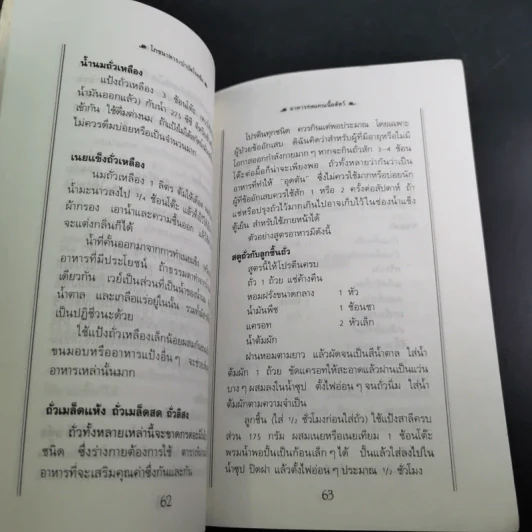 โภชนาการบำบัดโรค
น้ำนมถั่วเหลือง
แป้งถั่วเหลือง 3 ช้อนโต๊ะ
น้ำมันออกแล้ว) กับน้ำ 275 ซีซี
เข้ากัน ใช้ดื่มต่างนม ถ้าแป้งไม่ได้
ไม่ควรดื่มบ่อยหรือเป็นจำนวนมาก
เนยแข็งถั่วเหลือง
นมถั่วเหลือง 1 ลิตร ต้มให้เดือด
น้ำมะนาวลงไป 3/4 ช้อนโต๊ะ แล้วตั้งไว้
ผ้ากรอง เอาน้ำและความชื้นออก
จะแต่งกลิ่นก็ได้
น้ำที่คั้นออกมาจากการทำเนย
อาหารที่มีประโยชน์ ถ้าธรรมดา
เดียวกัน เวย์เป็นส่วนที่เป็นน้ำของ
น้ำตาล และเกลือแร่อยู่ในนั้น รวมทั้ง
เป็นปฏิชีวนะด้วย
ใช้แป้งถั่วเหลืองเล็กน้อยผสมกับ
ขนมอบหรืออาหารแป้งอื่น ๆ จะช่วย
อาหารเหล่านั้นมาก
ถั่วเมล็ดแห้ง ถั่วเมล็ดสด ถั่วลิสง
ถั่วทั้งหลายเหล่านี้จะขาดกรดอะมิโน
ชนิด ซึ่งร่างกายต้องการใช้
อาหารที่จะเสริมคุณค่าซึ่งกันและกัน
62
อาหารทดแทนเนื้อสัตว์
โปรตีนทุกชนิด ควรกินแต่พอประมาณ โดยเฉพาะ
ผู้ป่วยข้ออักเสบ ดิฉันคิดว่าสำหรับผู้ที่มีอายุหรือไม่มี
โอกาสออกกำลังกายมาก ๆ หากจะกินถั่วสัก 3-4 ช้อน
โต๊ะต่อมื้อก็น่าจะเพียงพอ ถั่วทั้งหลายว่ากันว่าเป็น
อาหารที่ทำให้ "อุดตัน" ซึ่งไม่ควรใช้มากหรือบ่อยนัก
ผู้ที่ข้ออักเสบควรใช้สัก 1 หรือ 2 ครั้งต่อสัปดาห์ ถ้า
แช่หรือปรุงถั่วไว้มากเกินไปอาจเก็บไว้ในช่องน้ำแข็ง
ตู้เย็น สำหรับใช้ภายหน้าได้
ตัวอย่างสูตรอาหารมีดังนี้
สตูถั่วกับลูกชิ้นถั่ว
สูตรนี้ให้โปรตีนครบ
ถั่ว 1 ถ้วย แช่ค้างคืน
หอมฝรั่งขนาดกลาง 1 หัว
น้ำมันพืช 1 ช้อนชา
แครอท 2 หัวเล็ก
น้ำต้มผัก
ฝานหอมตามยาว แล้วผัดจนเป็นสีน้ำตาล ใส่น้ำ
ต้มผัก 1 ถ้วย ขัดแครอทให้สะอาดแล้วฝานเป็นแว่น
บาง ๆ ผสมลงในน้ำซุป ตั้งไฟอ่อน ๆ จนถั่วนิ่ม ใส่น้ำ
ต้มผักตามความจำเป็น
ลูกชิ้น (ใส่ 1/2 ชั่วโมงก่อนใส่ถั่ว) ใช้แป้งสาลีครบ
ส่วน 175 กรัม ผสมเนยหรือเนยเทียม 1 ช้อนโต๊ะ
พรมน้ำพอปั้นเป็นก้อนเล็ก ๆ ได้ ปั้นแล้วใส่ลงไปใน
น้ำซุป ปิดฝา แล้วตั้งไฟอ่อน ๆ ประมาณ 1/2 ชั่วโมง
63